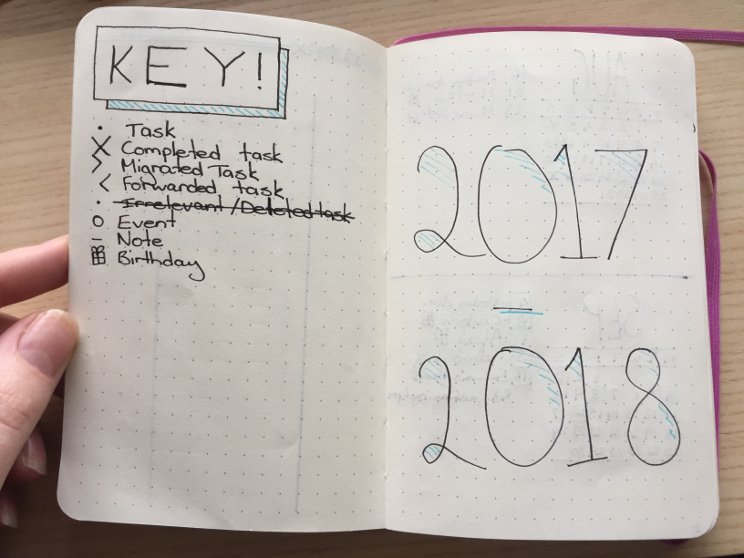 KEY!
• Task
X Completed task
> Migrated Task
< Forwarded task
• Irrelevant / Deleted task
O Event
– Note
Birthday
2017
—
2018
AUG
SEP